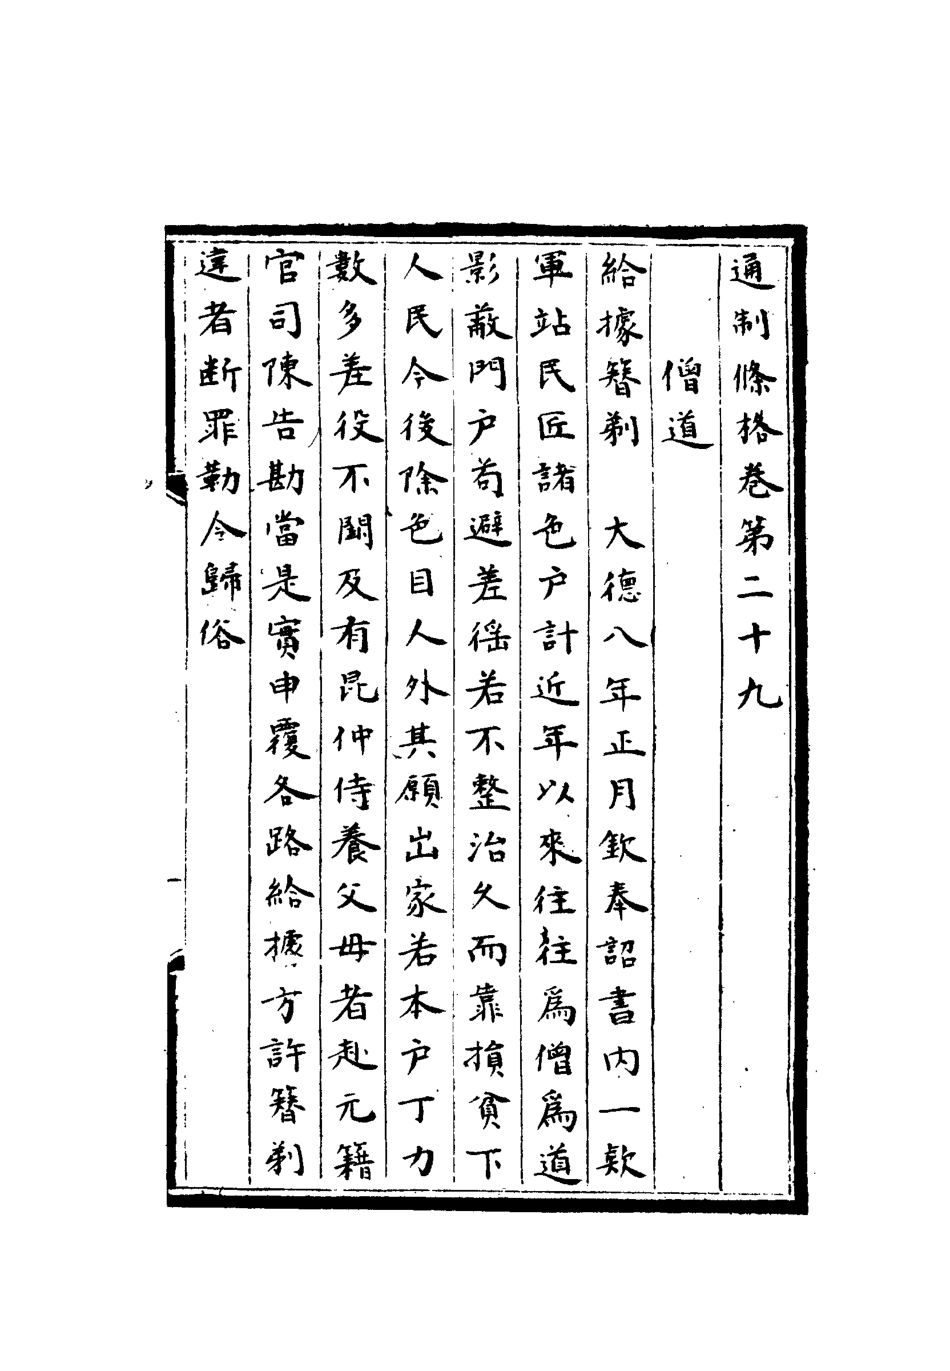 通制條格卷第二十九
僧道
給據簪剃　大德八年正月欽奉詔書內一款
軍站民匠諸色户計近年以來往往爲僧爲道
影蔽門户苟避差徭若不整治久而靠損貧下
人民今後除色目人外其願出家若本户丁力
數多差役不闕及有昆仲侍養父母者赴元籍
官司陳告勘當是實申覆各路給據方許簪剃
違者断罪勒令歸俗